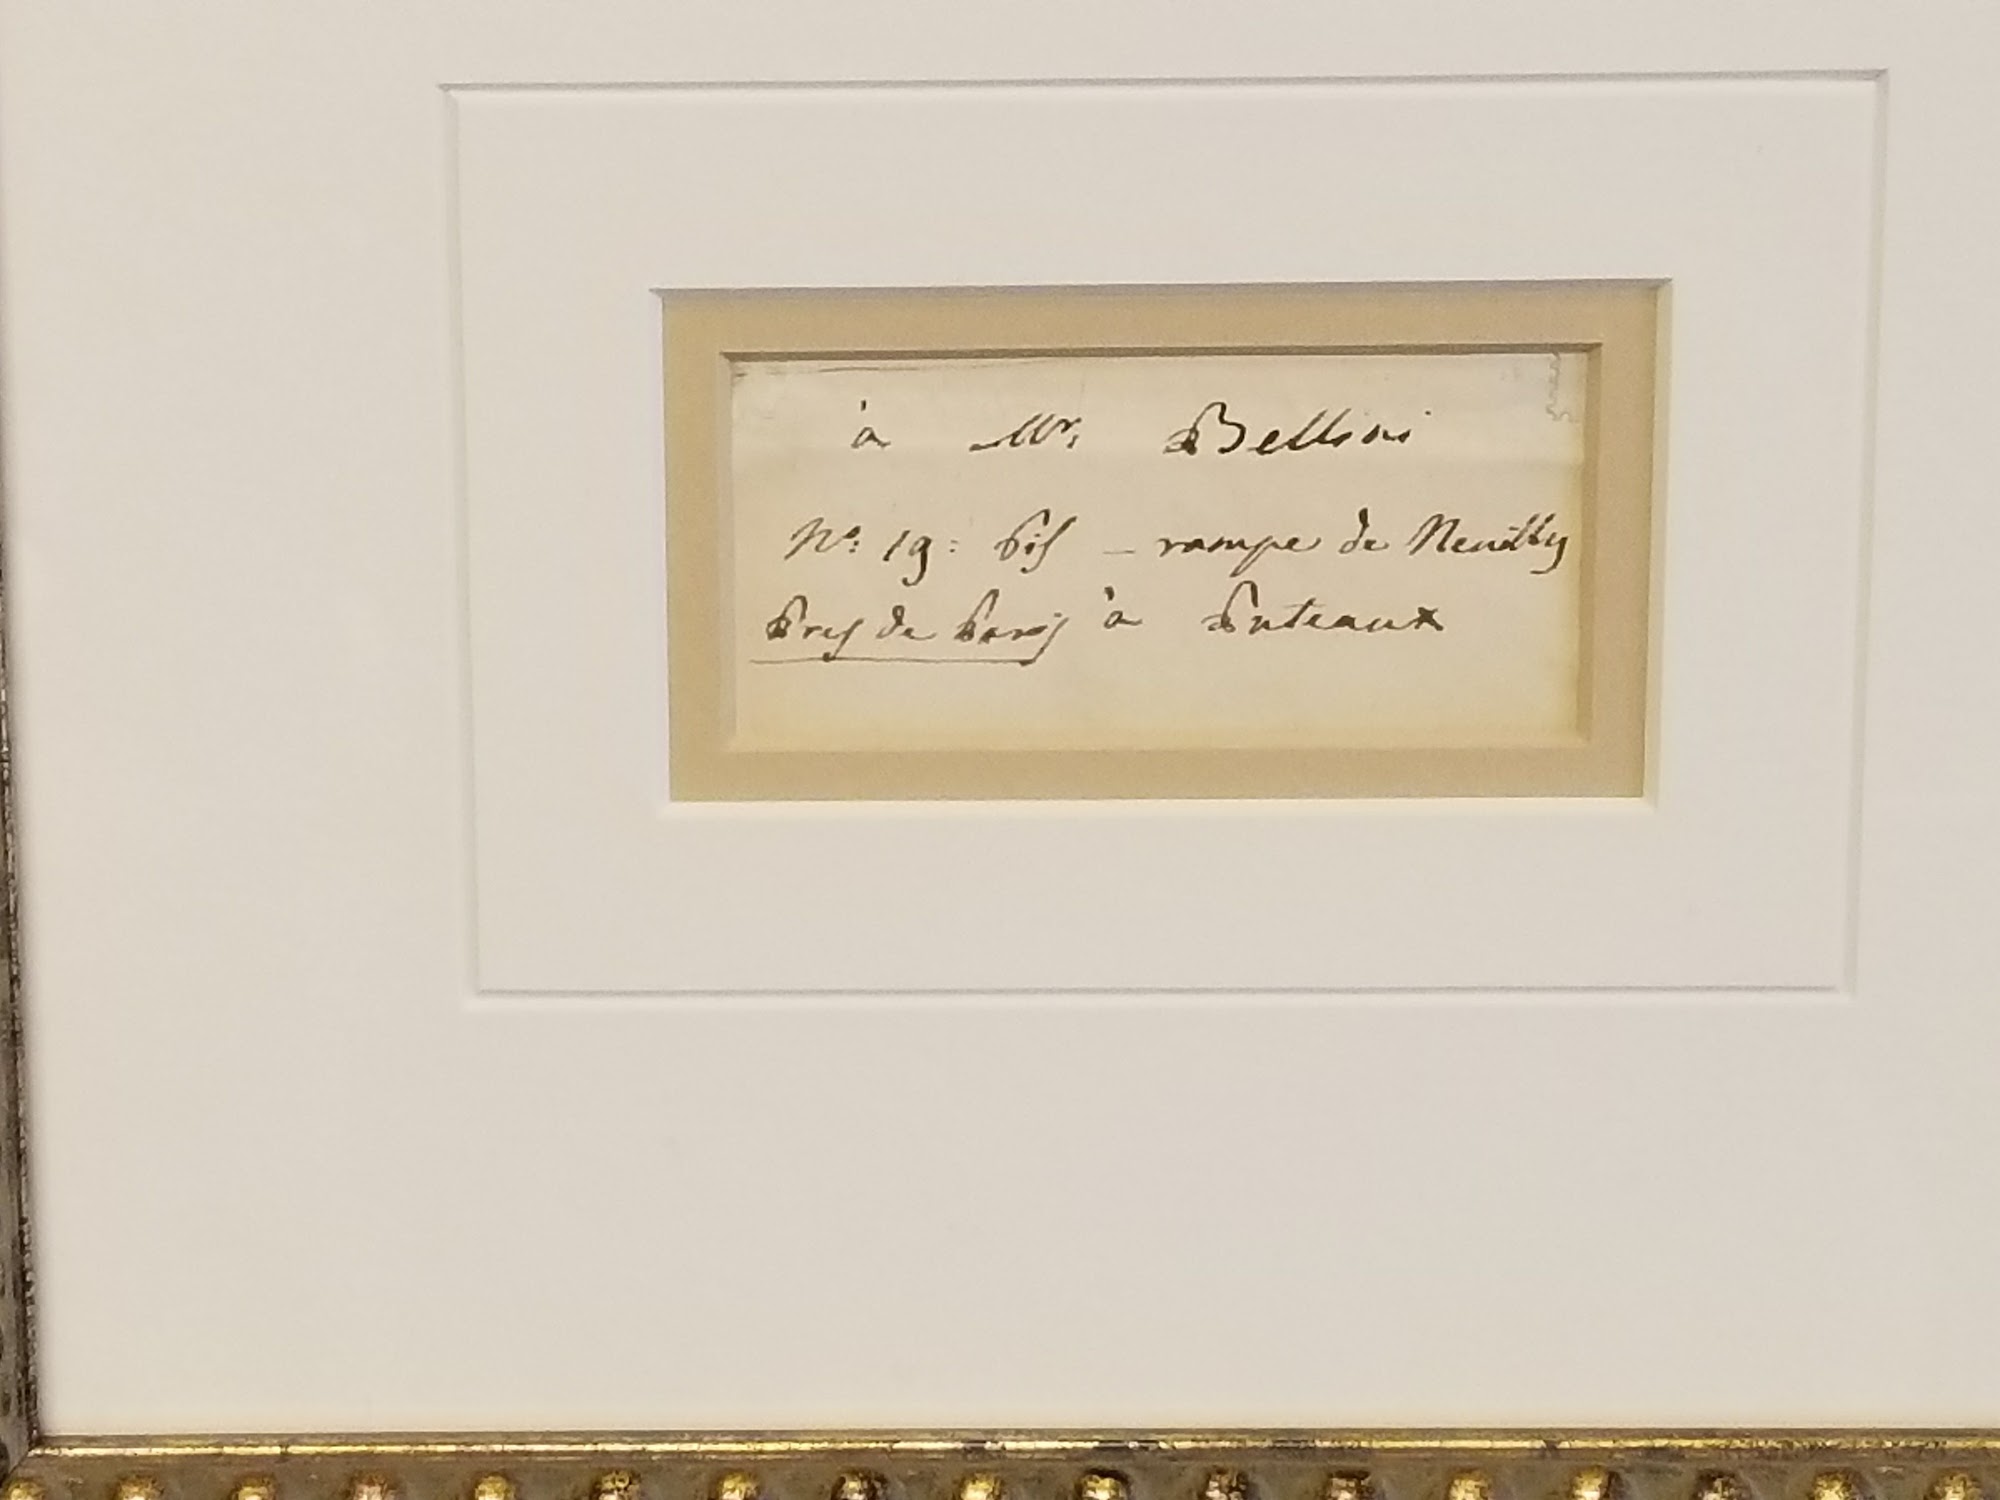 à Mr. Bellini
No: 19: bis – rampe de Neuilly
Pres de Paris à Puteaux